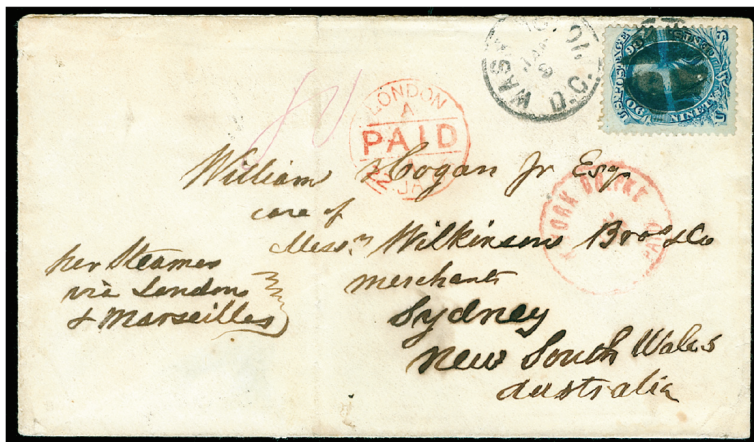 WASH D.C.
U.S. POSTAGE
LONDON
A
PAID
YORK BR PKT
PAID
William Hogan Jr Esq
care of
Messrs Wilkinsons Bros & Co
merchants
Sydney
New South Wales
Australia
per Steamer
via London
& Marseilles